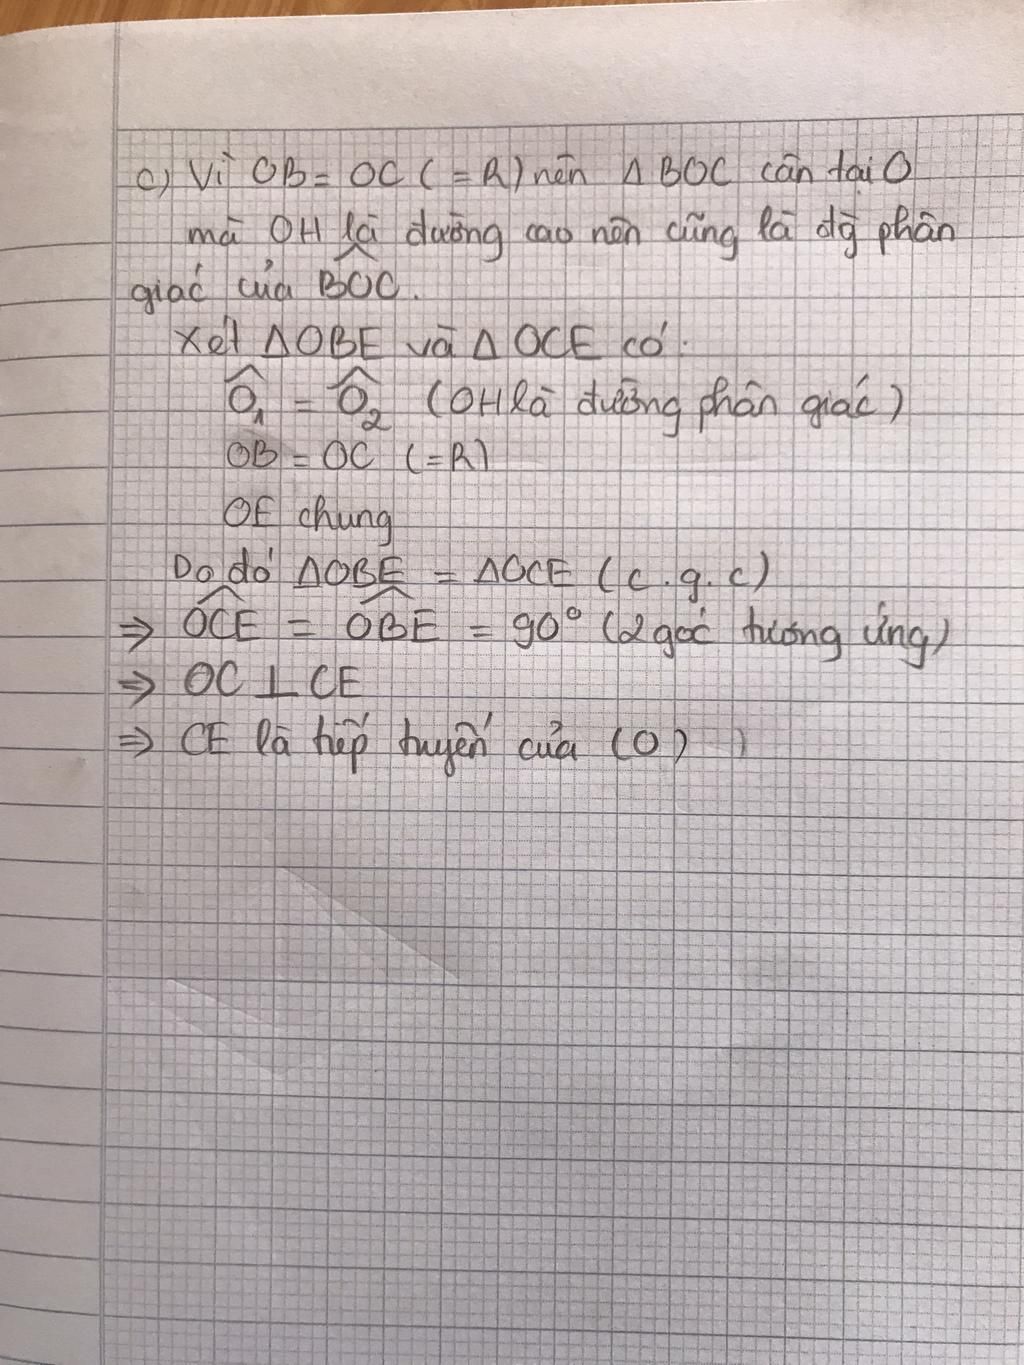 c) Vì OB = OC (= R) nên Δ BOC cân tại O
mà OH là đường cao nên cũng là đg phân
giác của \widehat{BOC}.
Xét ΔOBE và Δ OCE có:
\widehat{O}₁ = \widehat{O}₂ (OH là đường phân giác)
OB = OC (=R)
OE chung
Do đó ΔOBE = ΔOCE (c.g.c)
⇒ \widehat{OCE} = \widehat{OBE} = 90° (2 góc tương ứng)
⇒ OC ⊥ CE
⇒ CE là tiếp tuyến của (O)